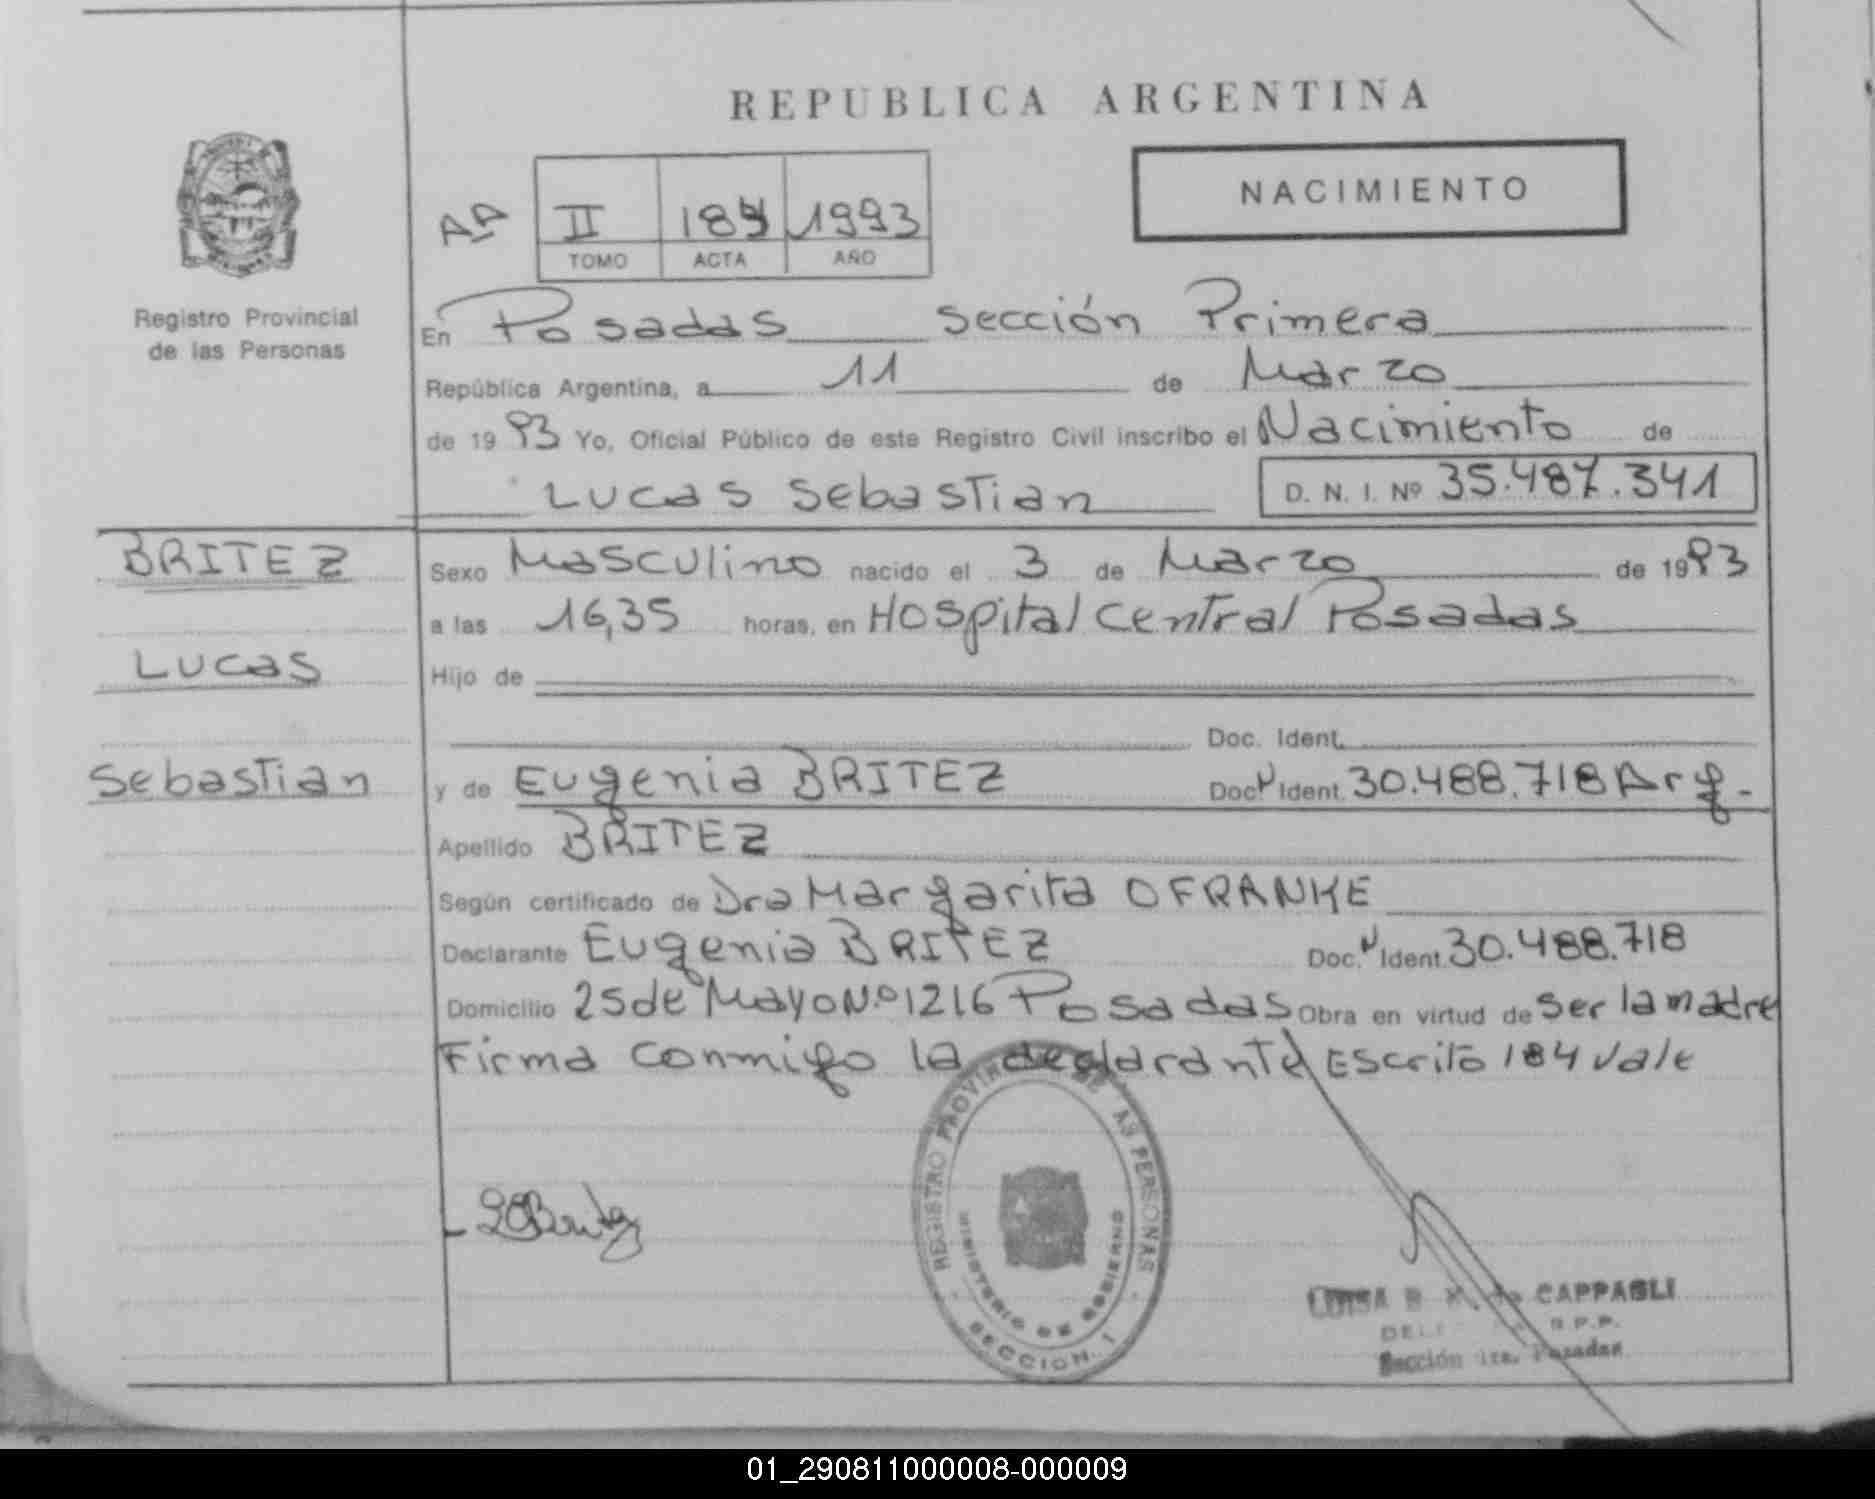 REPUBLICA ARGENTINA
NACIMIENTO
AA II 184 1993
TOMO ACTA AÑO
Registro Provincial
de las Personas
En Posadas sección Primera
República Argentina, a 11 de Marzo
de 1993 Yo, Oficial Público de este Registro Civil inscribo el Nacimiento de
Lucas Sebastian D. N. I. Nº 35.487.341
BRITEZ
Sexo Masculino nacido el 3 de Marzo de 1993
a las 16,35 horas, en Hospital Central Posadas
Lucas
Hijo de
Doc. Ident.
Sebastian
y de Eugenia BRITEZ Doc. N Ident. 30.488.718 Arg.
Apellido BRITEZ
Según certificado de Dra Margarita OFRANKE
Declarante Eugenia BRITEZ Doc. N Ident. 30.488.718
Domicilio 25 de Mayo N.º 1216 Posadas Obra en virtud de ser la madre
Firma conmigo la declarante Escrito 184 vale
REGISTRO PROVINCIAL DE LAS PERSONAS
MINISTERIO DE GOBIERNO
SECCION 1
LUISA de CAPPAGLI
R.P.P.
Sección 1ra. Posadas
01_290811000008-000009